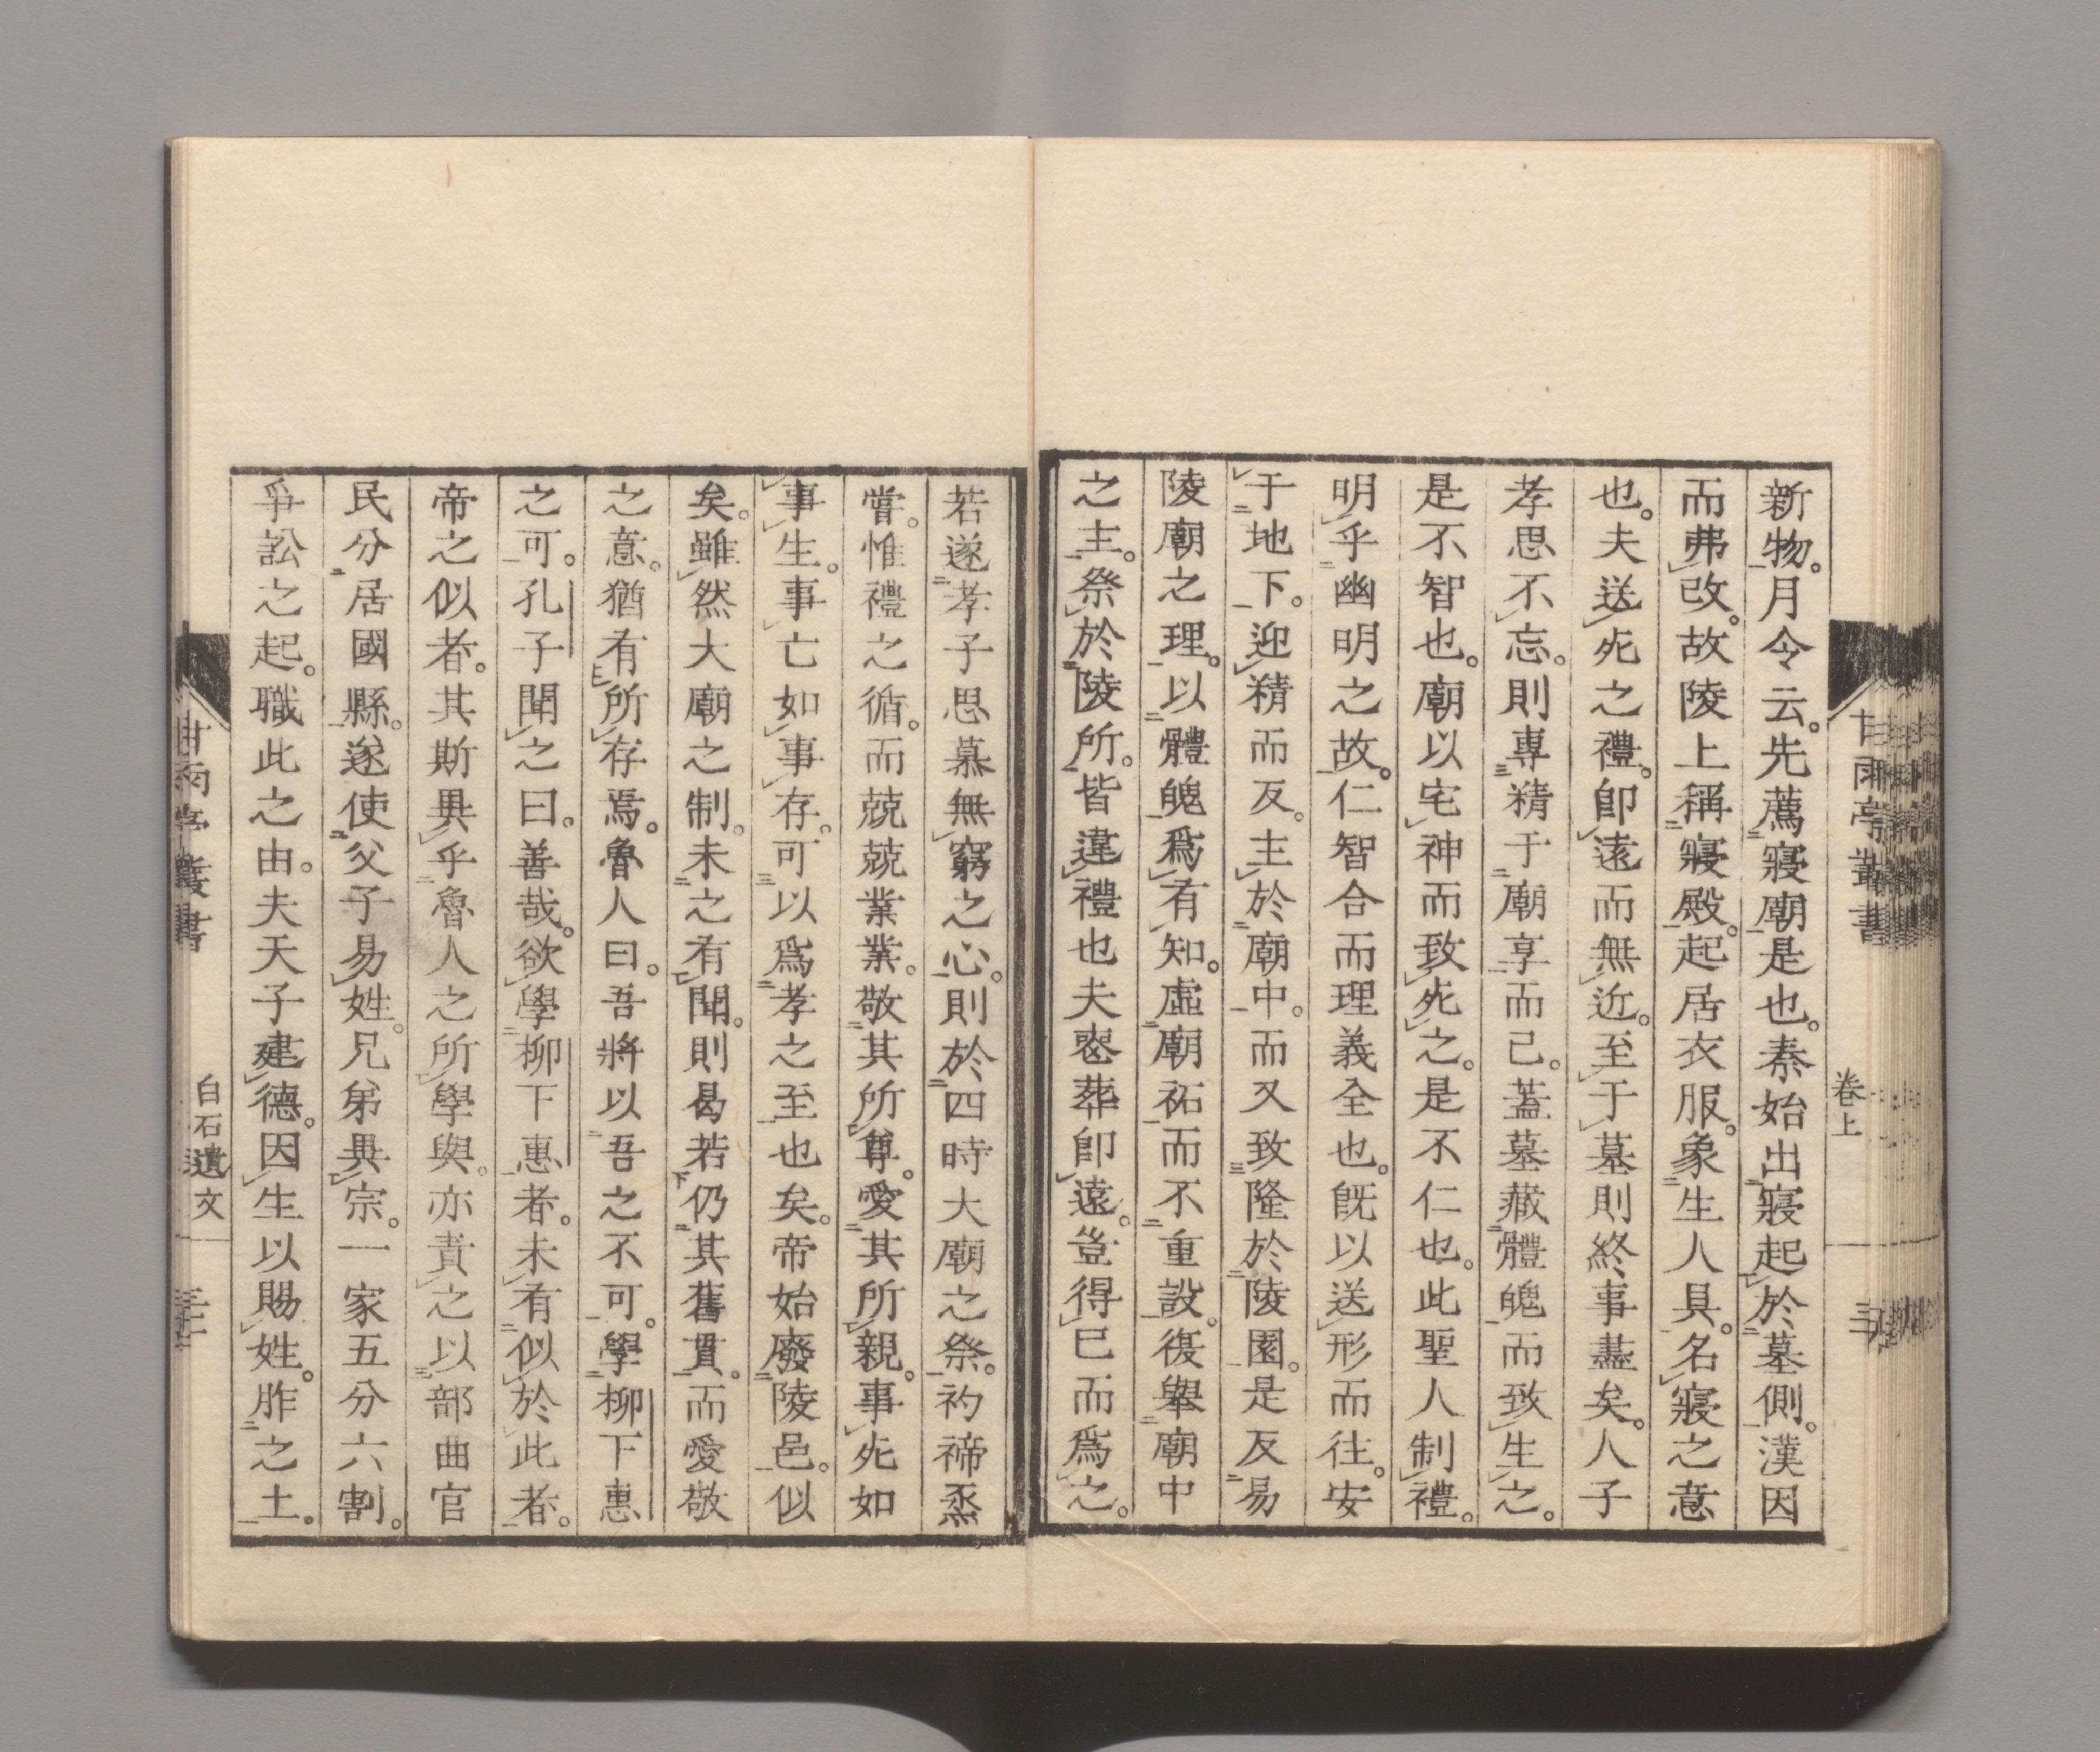 新物。月令云。先薦寢廟是也。秦始出寢起於墓側。漢因
而弗改。故陵上稱寢殿。起居衣服。象生人具。名寢之意
也。夫送死之禮。卽遠而無近。至于墓則終事盡矣。人子
孝思不忘。則專精于廟享而已。蓋墓藏體魄而致生之。
是不智也。廟以宅神而致死之。是不仁也。此聖人制禮。
明乎幽明之故。仁智合而理義全也。旣以送形而往。安
于地下。迎精而反。主於廟中。而又致隆於陵園。是反易
陵廟之理。以體魄爲有知。虛廟祏而不重設。復舉廟中
之主。祭於陵所。皆違禮也夫惡葬卽遠。豈得已而爲之。
若遂孝子思慕無窮之心。則於四時大廟之祭。礿禘烝
嘗。惟禮之循。而兢兢業業。敬其所尊。愛其所親。事死如
事生。事亡如事存。可以爲孝之至也矣。帝始廢陵邑。似
矣。雖然大廟之制。未之有聞。則曷若仍其舊貫。而愛敬
之意。猶有所存焉。魯人曰。吾將以吾之不可。學柳下惠
之可。孔子聞之曰。善哉。欲學柳下惠者。未有似於此者。
帝之似者。其斯異乎魯人之所學與。亦責之以部曲官
民分居國縣。遂使父子易姓。兄弟異宗。一家五分六割。
爭訟之起。職此之由。夫天子建德。因生以賜姓。胙之土。
甘雨亭叢書
卷上
三
甘雨亭叢書
白石遺文